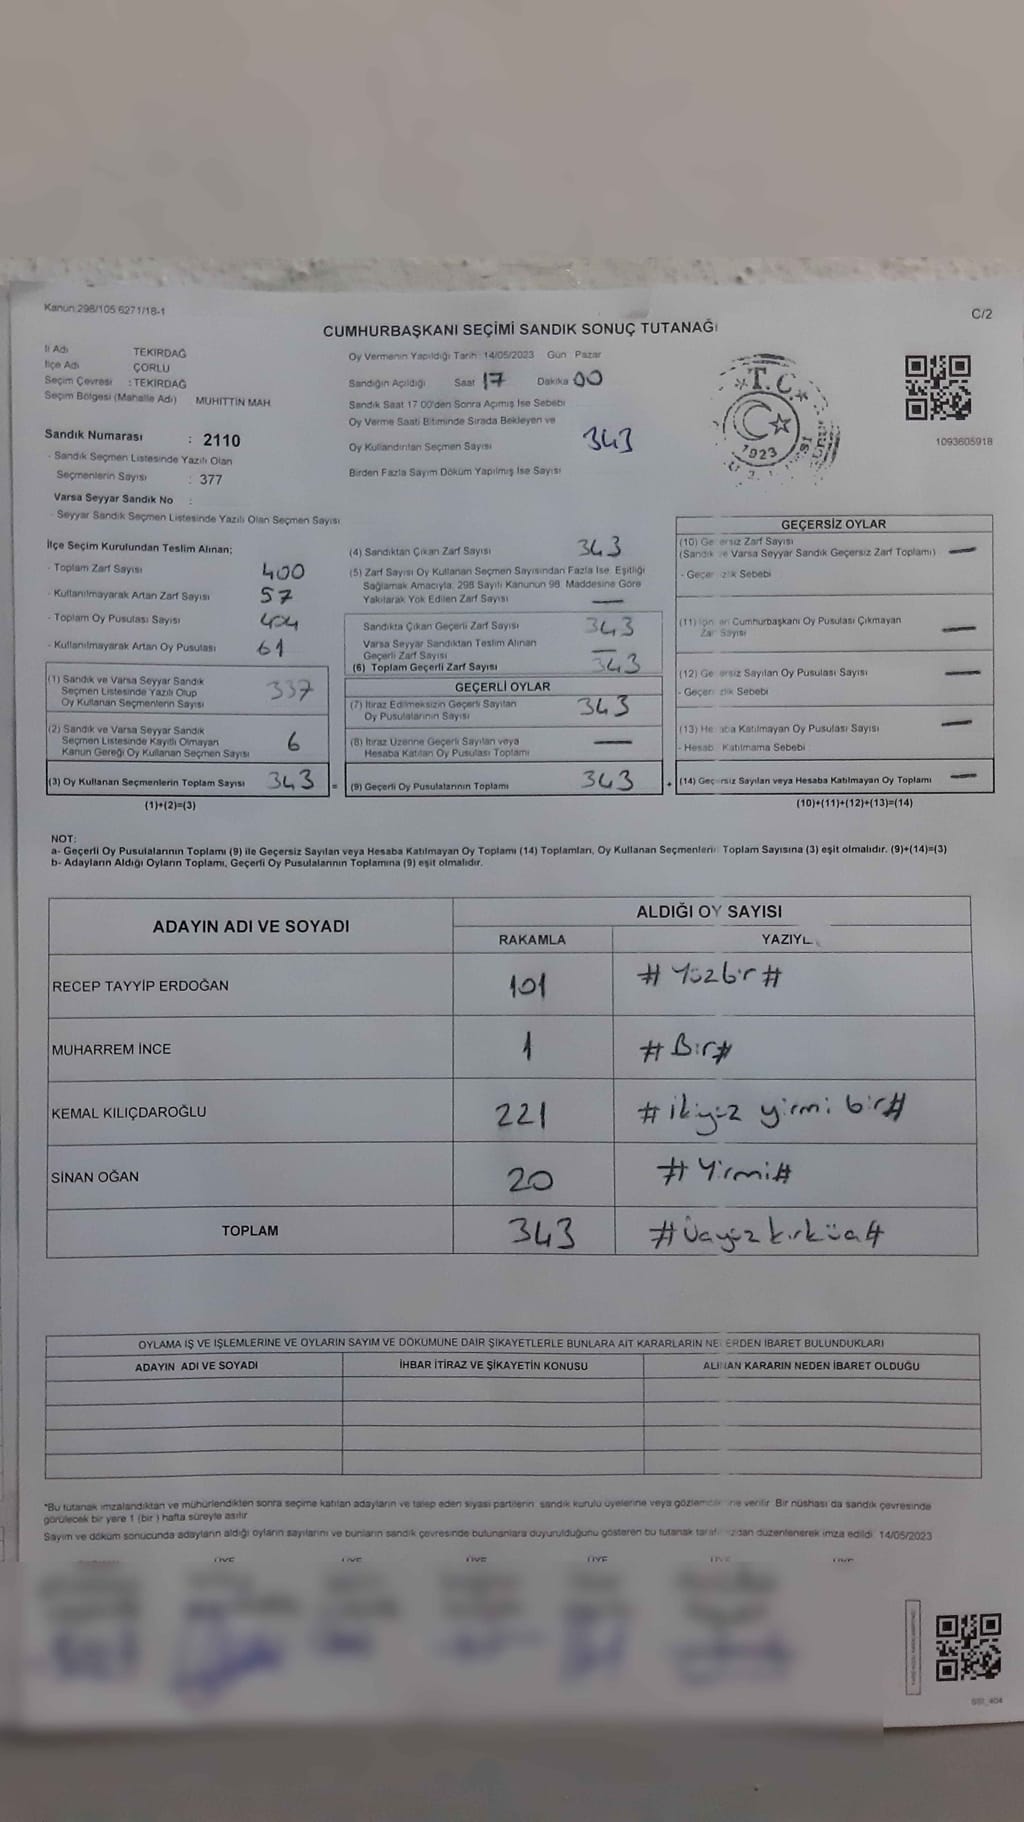 Kanun.298/105 6271/18-1
C/2
CUMHURBAŞKANI SEÇİMİ SANDIK SONUÇ TUTANAĞI
İl Adı TEKİRDAĞ
İlçe Adı ÇORLU
Seçim Çevresi : TEKİRDAĞ
Seçim Bölgesi (Mahalle Adı) MUHİTTİN MAH
Sandık Numarası : 2110
- Sandık Seçmen Listesinde Yazılı Olan
Seçmenlerin Sayısı : 377
Varsa Seyyar Sandık No :
- Seyyar Sandık Seçmen Listesinde Yazılı Olan Seçmen Sayısı
Oy Vermenin Yapıldığı Tarih 14/05/2023 Gün Pazar
Sandığın Açıldığı Saat 17 Dakika 00
Sandık Saat 17 00'den Sonra Açımış İse Sebebi
Oy Verme Saati Bitiminde Sırada Bekleyen ve
Oy Kullandırılan Seçmen Sayısı 343
Birden Fazla Sayım Döküm Yapılmış İse Sayısı
T.C.
1923
1093605918
İlçe Seçim Kurulundan Teslim Alınan;
- Toplam Zarf Sayısı 400
- Kullanılmayarak Artan Zarf Sayısı 57
- Toplam Oy Pusulası Sayısı 404
- Kullanılmayarak Artan Oy Pusulası 61
(1) Sandık ve Varsa Seyyar Sandık
Seçmen Listesinde Yazılı Olup
Oy Kullanan Seçmenlerin Sayısı 337
(2) Sandık ve Varsa Seyyar Sandık
Seçmen Listesinde Kayıtlı Olmayan
Kanun Gereği Oy Kullanan Seçmen Sayısı 6
(3) Oy Kullanan Seçmenlerin Toplam Sayısı 343 =
(1)+(2)=(3)
(4) Sandıktan Çıkan Zarf Sayısı 343
(5) Zarf Sayısı Oy Kullanan Seçmen Sayısından Fazla İse, Eşitliği
Sağlamak Amacıyla, 298 Sayılı Kanunun 98. Maddesine Göre
Yakılarak Yok Edilen Zarf Sayısı —
Sandıkta Çıkan Geçerli Zarf Sayısı 343
Varsa Seyyar Sandıktan Teslim Alınan
Geçerli Zarf Sayısı —
(6) Toplam Geçerli Zarf Sayısı 343
GEÇERLİ OYLAR
(7) İtiraz Edilmeksizin Geçerli Sayılan
Oy Pusulalarının Sayısı 343
(8) İtiraz Üzerine Geçerli Sayılan veya
Hesaba Katılan Oy Pusulası Toplamı —
(9) Geçerli Oy Pusulalarının Toplamı 343 +
GEÇERSİZ OYLAR
(10) Ge ersiz Zarf Sayısı
(Sandık ve Varsa Seyyar Sandık Geçersiz Zarf Toplamı) —
- Geçer zik Sebebi
Cumhurbaşkanı Oy Pusulası Çıkmayan
Zarf Sayısı —
(12) Ge ersiz Sayılan Oy Pusulası Sayısı —
- Geçer zik Sebebi
(13) He aba Katılmayan Oy Pusulası Sayısı —
- Hesab Katılmama Sebebi
(14) Geçersiz Sayılan veya Hesaba Katılmayan Oy Toplamı —
(10)+(11)+(12)+(13)=(14)
NOT:
a- Geçerli Oy Pusulalarının Toplamı (9) ile Geçersiz Sayılan veya Hesaba Katılmayan Oy Toplamı (14) Toplamları, Oy Kullanan Seçmenlerin Toplam Sayısına (3) eşit olmalıdır. (9)+(14)=(3)
b- Adayların Aldığı Oyların Toplamı, Geçerli Oy Pusulalarının Toplamına (9) eşit olmalıdır.
ADAYIN ADI VE SOYADI ALDIĞI OY SAYISI
RAKAMLA YAZIYL
RECEP TAYYİP ERDOĞAN 101 # Yüzbir #
MUHARREM İNCE 1 # Bir #
KEMAL KILIÇDAROĞLU 221 # ikiyüz yirmi bir #
SİNAN OĞAN 20 # Yirmi #
TOPLAM 343 # Üçyüz kırküç #
OYLAMA İŞ VE İŞLEMLERİNE VE OYLARIN SAYIM VE DÖKÜMÜNE DAİR ŞİKAYETLERLE BUNLARA AİT KARARLARIN NELERDEN İBARET BULUNDUKLARI
ADAYIN ADI VE SOYADI İHBAR İTİRAZ VE ŞİKAYETİN KONUSU ALINAN KARARIN NEDEN İBARET OLDUĞU
*Bu tutanak imzalandıktan ve mühürlendikten sonra seçime katılan adayların ve talep eden siyasi partilerin sandık kurulu üyelerine veya gözlemcilerine verilir. Bir nüshası da sandık çevresinde
görülecek bir yere 1 (bir) hafta süreyle asılır
Sayım ve döküm sonucunda adayların aldığı oyların sayılarını ve bunların sandık çevresinde bulunanlara duyurulduğunu gösteren bu tutanak tarafımızdan düzenlenerek imza edildi. 14/05/2023
ÜYE ÜYE ÜYE ÜYE ÜYE ÜYE